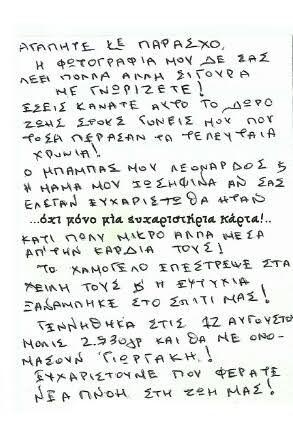 ΑΓΑΠΗΤΕ ΚΕ ΠΑΡΑΣΧΟ,
Η ΦΩΤΟΓΡΑΦΙΑ ΜΟΥ ΔΕ ΣΑΣ
ΛΕΕΙ ΠΟΛΛΑ ΑΛΛΗ ΣΙΓΟΥΡΑ
ΜΕ ΓΝΩΡΙΖΕΤΕ!
ΕΣΕΙΣ ΚΑΝΑΤΕ ΑΥΤΟ ΤΟ ΔΩΡΟ
ΖΩΗΣ ΣΤΟΥΣ ΓΟΝΕΙΣ ΜΟΥ ΠΟΥ
ΤΟΣΑ ΠΕΡΑΣΑΝ ΤΑ ΤΕΛΕΥΤΑΙΑ
ΧΡΟΝΙΑ!
Ο ΜΠΑΜΠΑΣ ΜΟΥ ΛΕΟΝΑΡΔΟΣ &
Η ΜΑΜΑ ΜΟΥ ΙΩΣΗΦΙΝΑ ΑΝ ΣΑΣ
ΕΛΕΓΑΝ ΕΥΧΑΡΙΣΤΩ ΘΑ ΗΤΑΝ
...όχι μόνο μία ευχαριστήρια κάρτα!..
ΚΑΤΙ ΠΟΛΥ ΜΙΚΡΟ ΑΠΛΑ ΜΕΣΑ
ΑΠ'ΤΗΝ ΚΑΡΔΙΑ ΤΟΥΣ!
ΤΟ ΧΑΜΟΓΕΛΟ ΕΠΕΣΤΡΕΨΕ ΣΤΑ
ΧΕΙΛΗ ΤΟΥΣ & Η ΕΥΤΥΧΙΑ
ΞΑΝΑΜΠΗΚΕ ΣΤΟ ΣΠΙΤΙ ΜΑΣ!
ΓΕΝΝΗΘΗΚΑ ΣΤΙΣ 12 ΑΥΓΟΥΣΤΟΥ
ΜΟΛΙΣ 2.930γρ ΚΑΙ ΘΑ ΜΕ ΟΝΟ-
ΜΑΣΟΥΝ ΓΙΩΡΓΑΚΗ!
ΕΥΧΑΡΙΣΤΟΥΜΕ ΠΟΥ ΦΕΡΑΤΕ
ΝΕΑ ΠΝΟΗ ΣΤΗ ΖΩΗ ΜΑΣ!